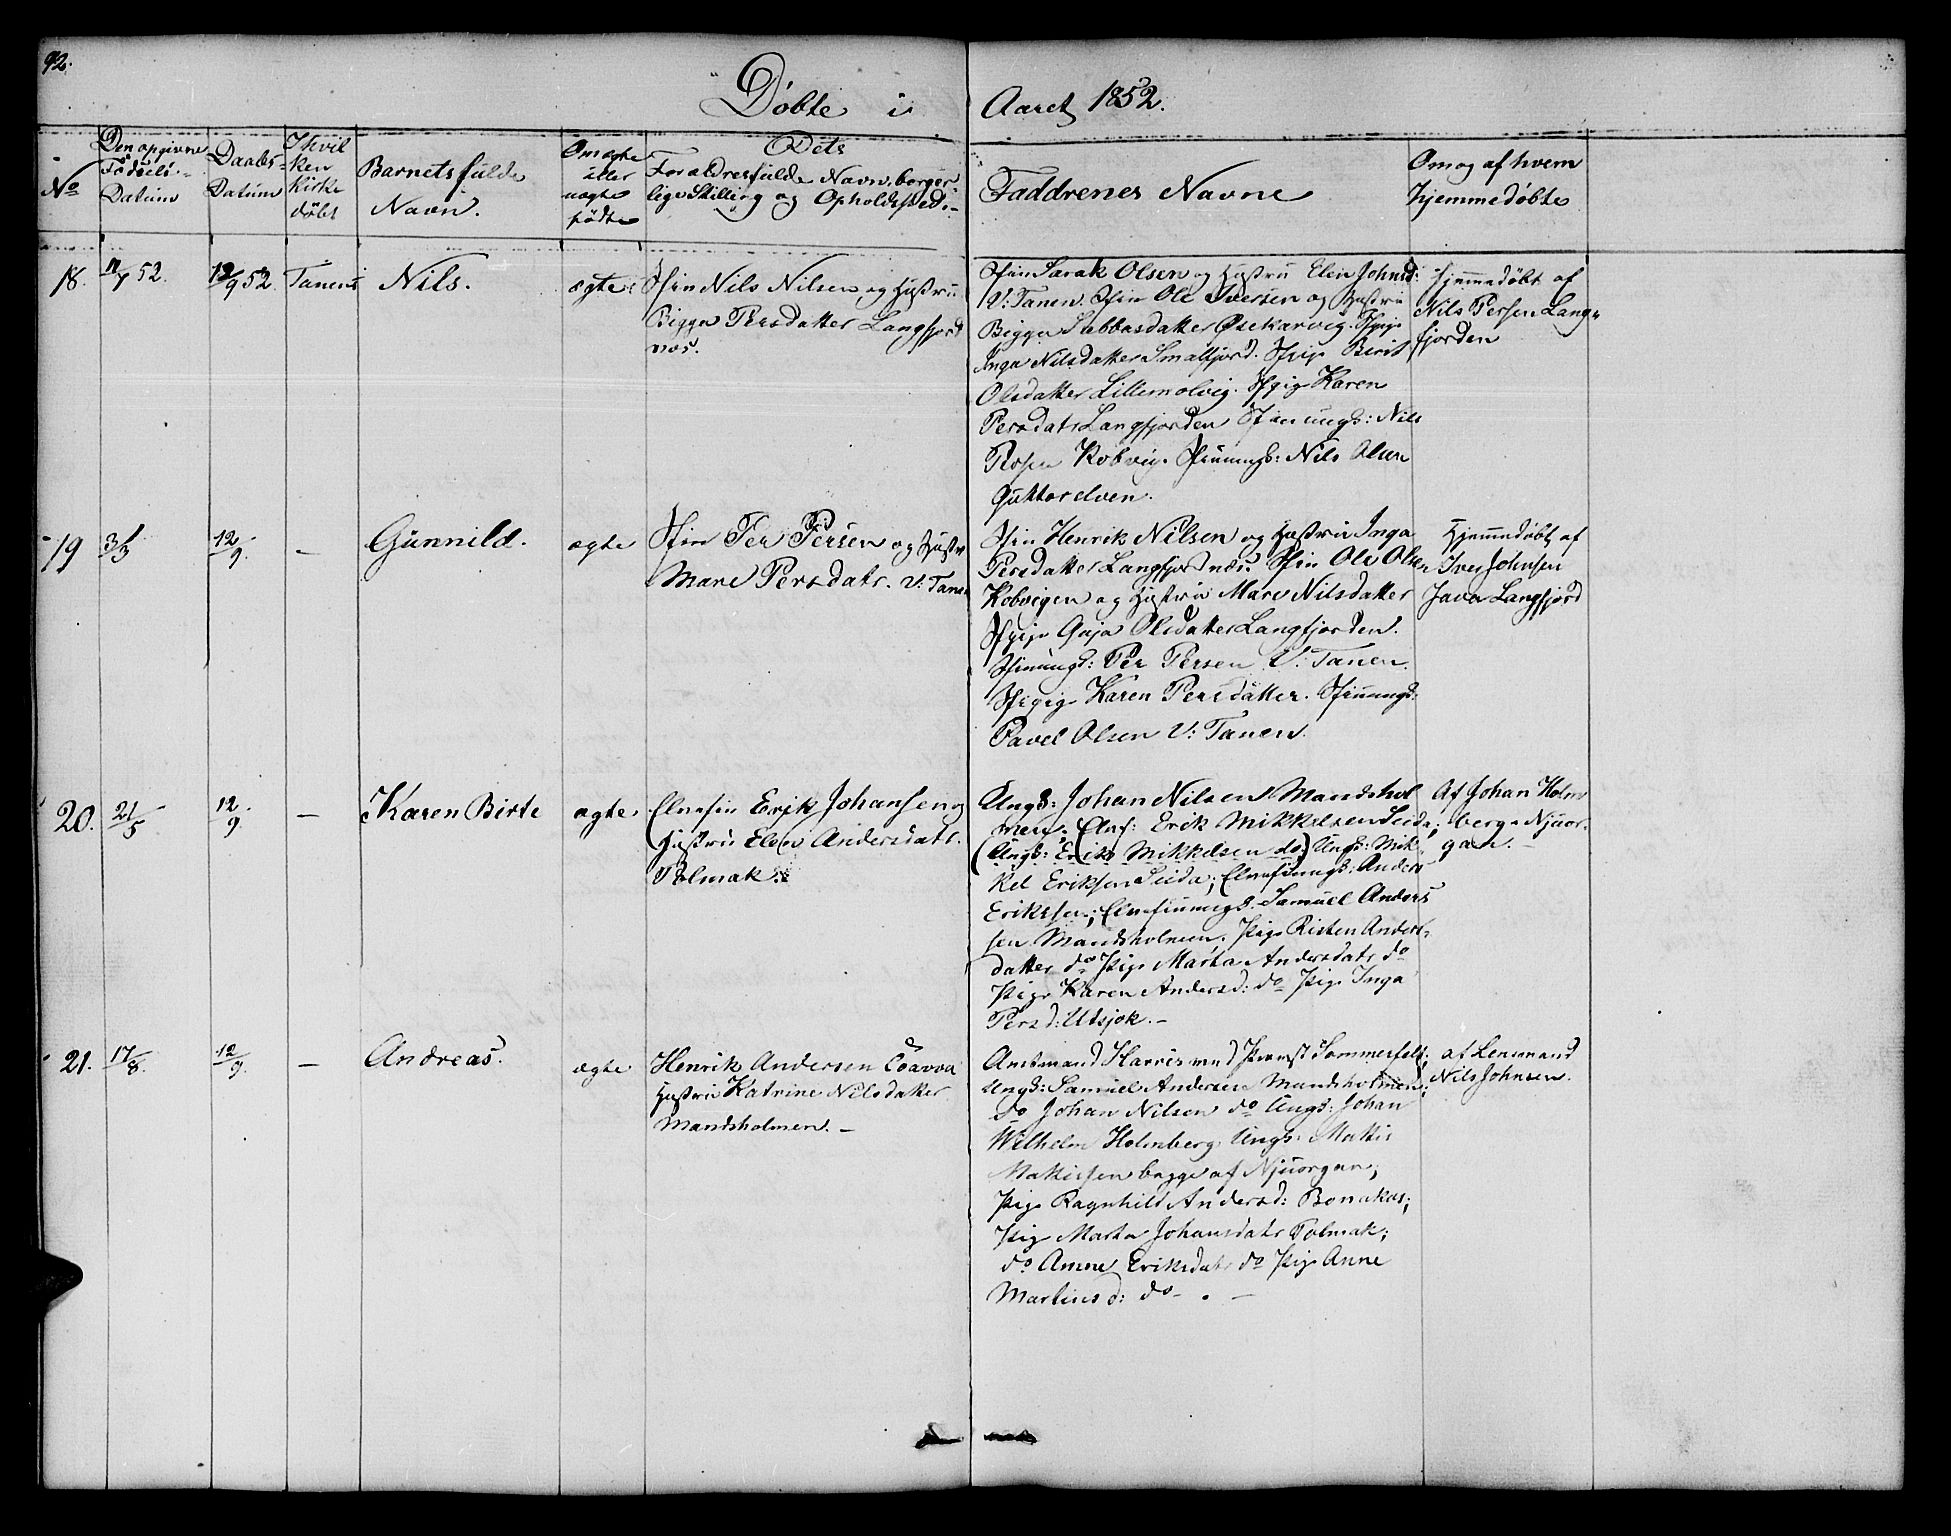 92.
Døbte i Aaret 1852.
No
Den opgivne Fødsels-Datum
Daabs-Datum
I hvilken Kirke døbt
Barnets fulde Navn.
Om ægte eller uægte fødte
Dets Forældres fulde Navn, borgerlige Stilling og Opholdssted.-
Faddrenes Navne
Om og af hvem hjemmedøbte
18.
52.
12/9 52.
Tanens
Nils.
ægte
Sfin Nils Nilsen og Hustru
Bigga Persdatter Langfjord
næs.
Sfin Sarak Olsen og Hustru Elen Johnsd:
V: Tanen. Sfin Ole Iversen og Hustru
Bigga Sabbasdatter Østkarvig. Sfpige
Inga Nilsdatter Smalfjord. Sfpige Berit
Olsdatter Lillemolvig. Sfpige Karen
Persdatr Langfjorden Sfinungk: Nils
Persen Kobvig. Sfinungk: Nils Olsen
elven.
Hjemmedøbt af
Nils Persen Lang-
fjorden
19
3/3
12/9.
-
Gunnild.
ægte
Sfin Per Persen og Hustru
Mare Persdatr. V: Tanen
Sfin Henrik Nilsen og Hustru Inga
Persdatter Langfjordnæs. Sfin Ole Olsen
Kobvigen og Hustru Mare Nilsdatter
Sfpige Gaja Olsdatter Langfjorden.
Sfinungk: Per Persen V: Tanen.
Sfpige Karen Persdatter. Sfinungk:
Pavel Olsen V: Tanen.
Hjemmedøbt af
Iver Johnsen
Langfjord
20.
21/5
12/9.
-
Karen Birte
ægte.
Elvefin Erik Johansen og
Hustru Elen Andersdatr.
Polmak.
Ungk: Johan Nilsen Mandshol
men; Elvf: Erik Mikkelsen Seida;
(Ungk: Erik Mikkelsen do;) Ungk: Mik
kel Eriksen Seida; Elvefinungk: Anders
Eriksen; Elvefinungk. Samuel Anders
sen Mandsholmen; Pige Risten Anders-
datter do Pige Marta Andersdatr do
Pige Karen Andersd: do Pige Inga
Persd: Utsjok.-
Af Johan Holm
berg Njuor-
gan.-
21.
17/8.
12/9.
-
Andreas.
ægte
Henrik Andersen
Hustru Katrine Nilsdatter
Mandsholmen.-
Amtmand Harris ved Provst Sommerfelt;
Ungk: Samuel Andersen Mandsholmen;
do Johan Nilsen do Ungk: Johan
Wilhelm Holmberg Ungk: Mattis
Mattissen begge af Njuorgan;
Pige Ragnhild Andersd: Bonakas;
Pige Marta Johansdatr Polmak;
do Anne Eriksdatr do Pige Anne
do-
af Lensmand
Nils Johnsen.